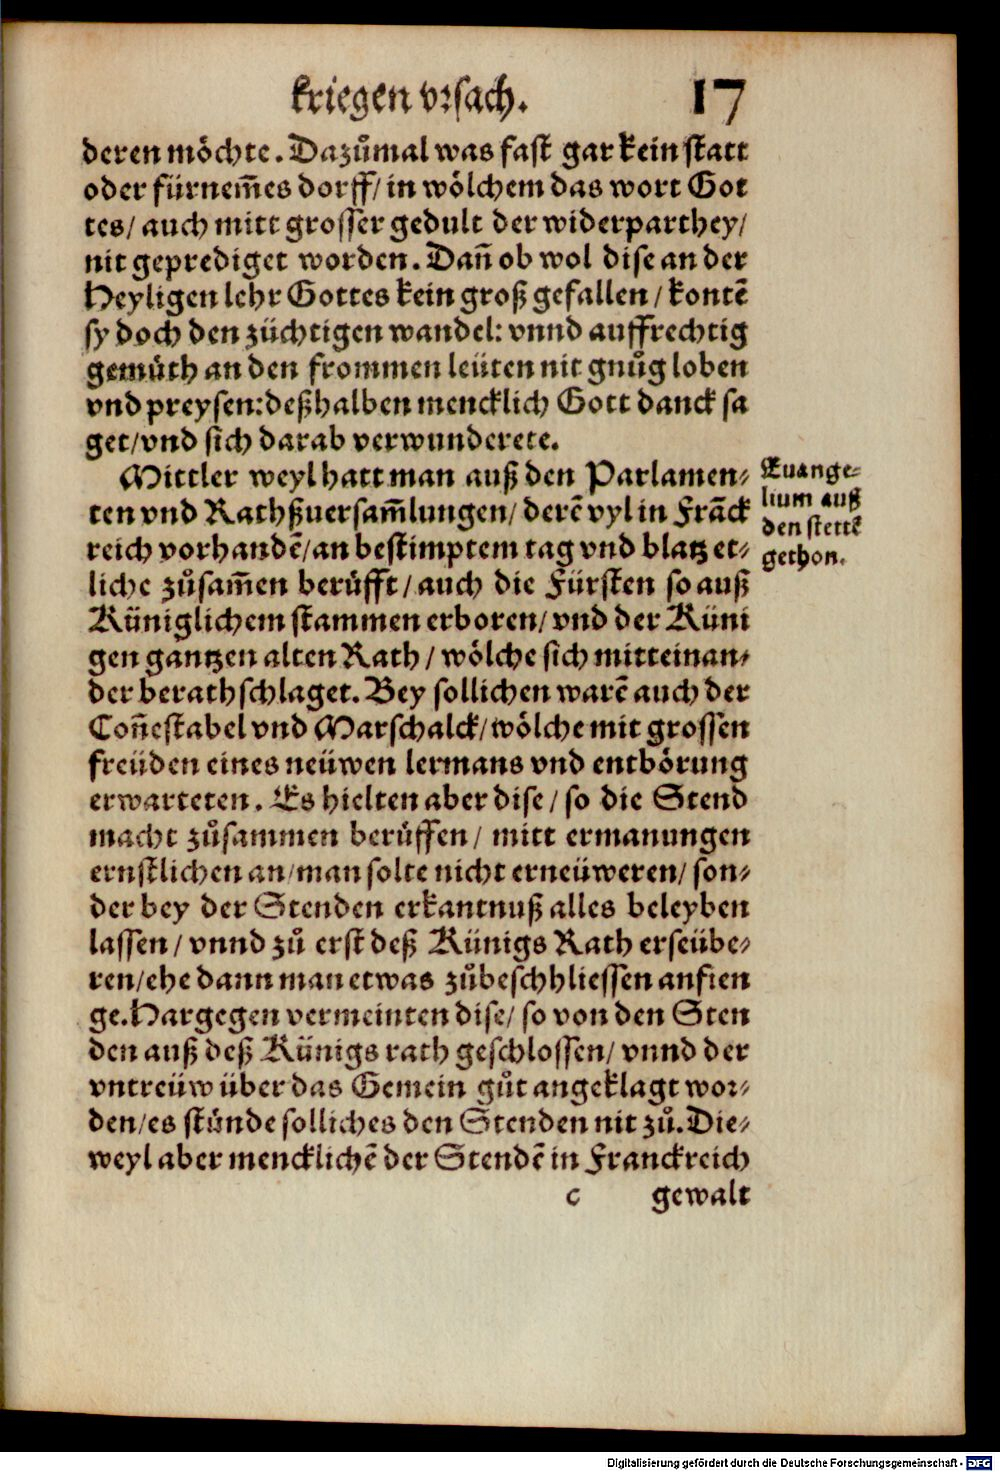 kriegen vrsach. 17
deren möchte. Dazůmal was fast gar kein statt
oder fürnem̃es dorff/ in wölchem das wort Got
tes/ auch mitt grosser gedult der widerparthey/
nit geprediget worden. Dañ ob wol dise an der
Heyligen lehr Gottes kein groß gefallen/ kontẽ
sy doch den züchtigen wandel: vnnd auffrechtig
gemüth an den frommen leüten nit gnůg loben
vnd preysen: deßhalben mencklich Gott danck sa
get/ vnd sich darab verwunderete.
Mittler weyl hatt man auß den Parlamen-
ten vnd Rathßuersam̃lungen/ derẽ vyl in Frãck
reich vorhandẽ/ an bestimptem tag vnd blatz et-
liche zůsam̃en berůfft/ auch die Fürsten so auß
Küniglichem stammen erboren/ vnd der Küni
gen gantzen alten Rath/ wölche sich mitteinan-
der berathschlaget. Bey sollichen warẽ auch der
Coñestabel vnd Marschalck/ wölche mit grossen
freüden eines neüwen lermans vnd entbörung
erwarteten. Es hielten aber dise/ so die Stend
macht zůsammen berůffen/ mitt ermanungen
ernstlichen an/ man solte nicht erneüweren/ son-
der bey der Stenden erkantnuß alles beleyben
lassen/ vnnd zů erst deß Künigs Rath erseübe-
ren/ ehe dann man etwas zůbeschhliessen anfien
ge. Hargegen vermeinten dise/ so von den Sten
den auß deß Künigs rath geschlossen/ vnnd der
vntreüw über das Gemein gůt angeklagt wor-
den/ es stünde solliches den Stenden nit zů. Die-
weyl aber mencklichẽ der Stendẽ in Franckreich
c gewalt
Euange-
lium auß
den stettẽ
gethon.
Digitalisierung gefördert durch die Deutsche Forschungsgemeinschaft - DFG